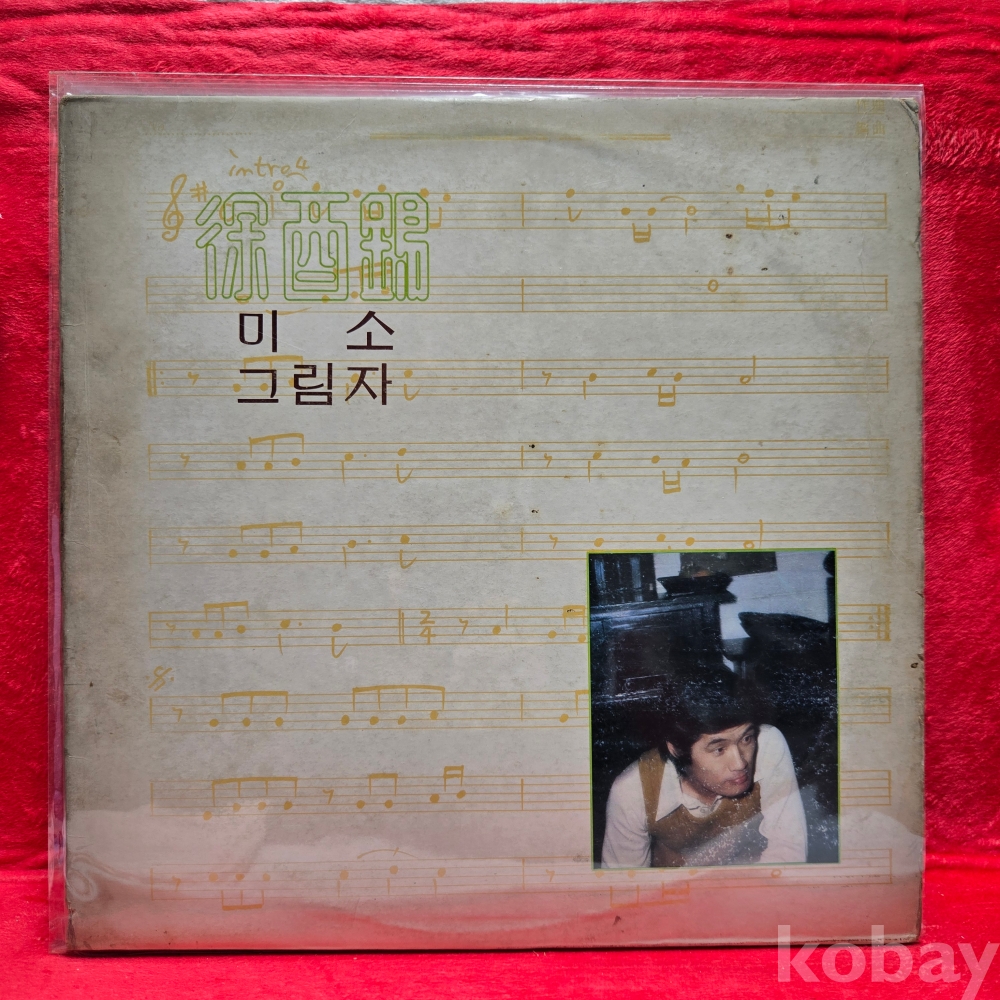 intro4
徐酉錫
미 소
그림자
2/4
kobay